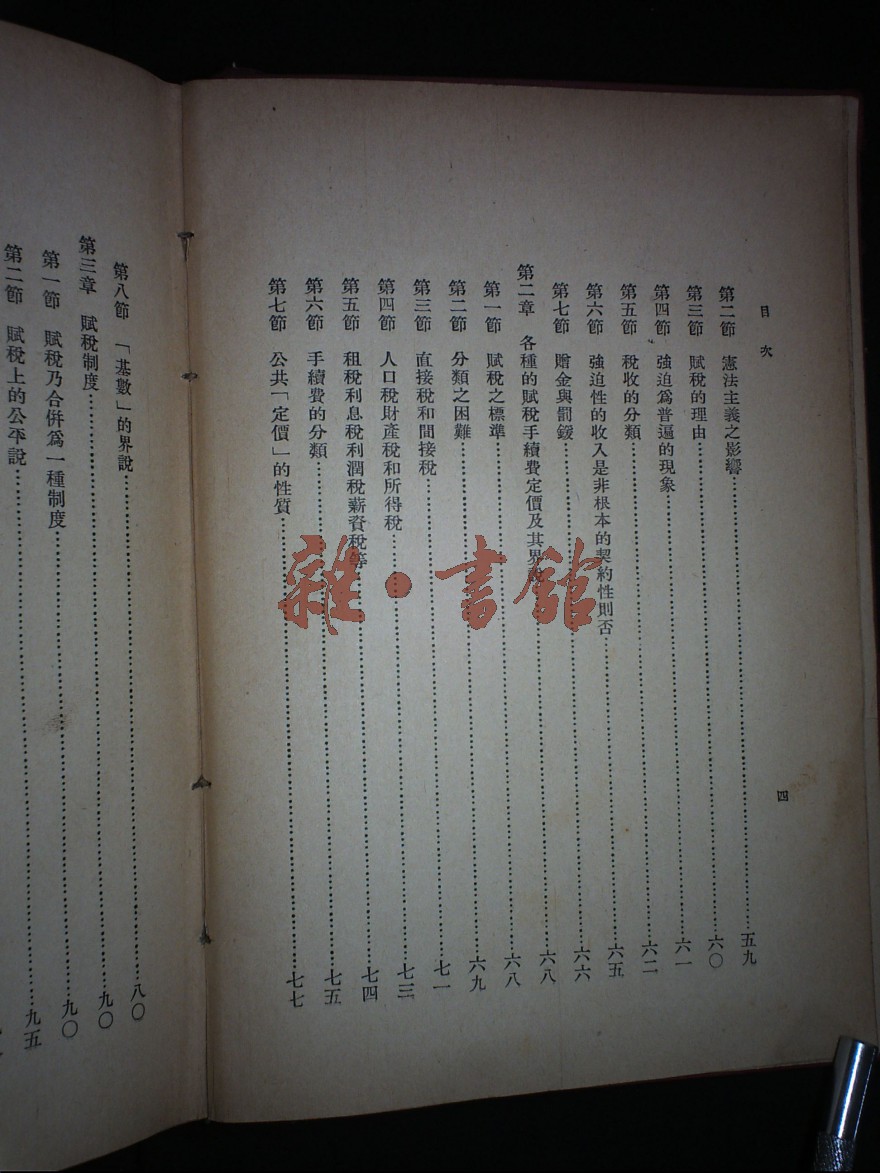 目次
四
第二節 憲法主義之影響……五九
第三節 賦稅的理由……六〇
第四節 強迫爲普遍的現象……六一
第五節 稅收的分類……六二
第六節 強迫性的收入是非根本的契約性則否……六五
第七節 贈金與罰鍰……六六
第二章 各種的賦稅手續費定價及其界說……六八
第一節 賦稅之標準……六八
第二節 分類之困難……六九
第三節 直接稅和間接稅……七一
第四節 人口稅財產稅和所得稅……七三
第五節 租稅利息稅利潤稅薪資稅等……七四
第六節 手續費的分類……七五
第七節 公共「定價」的性質……七七
第八節 「基數」的界說……八〇
第三章 賦稅制度……九〇
第一節 賦稅乃合併爲一種制度……九〇
第二節 賦稅上的公平說……九五
雜·書館